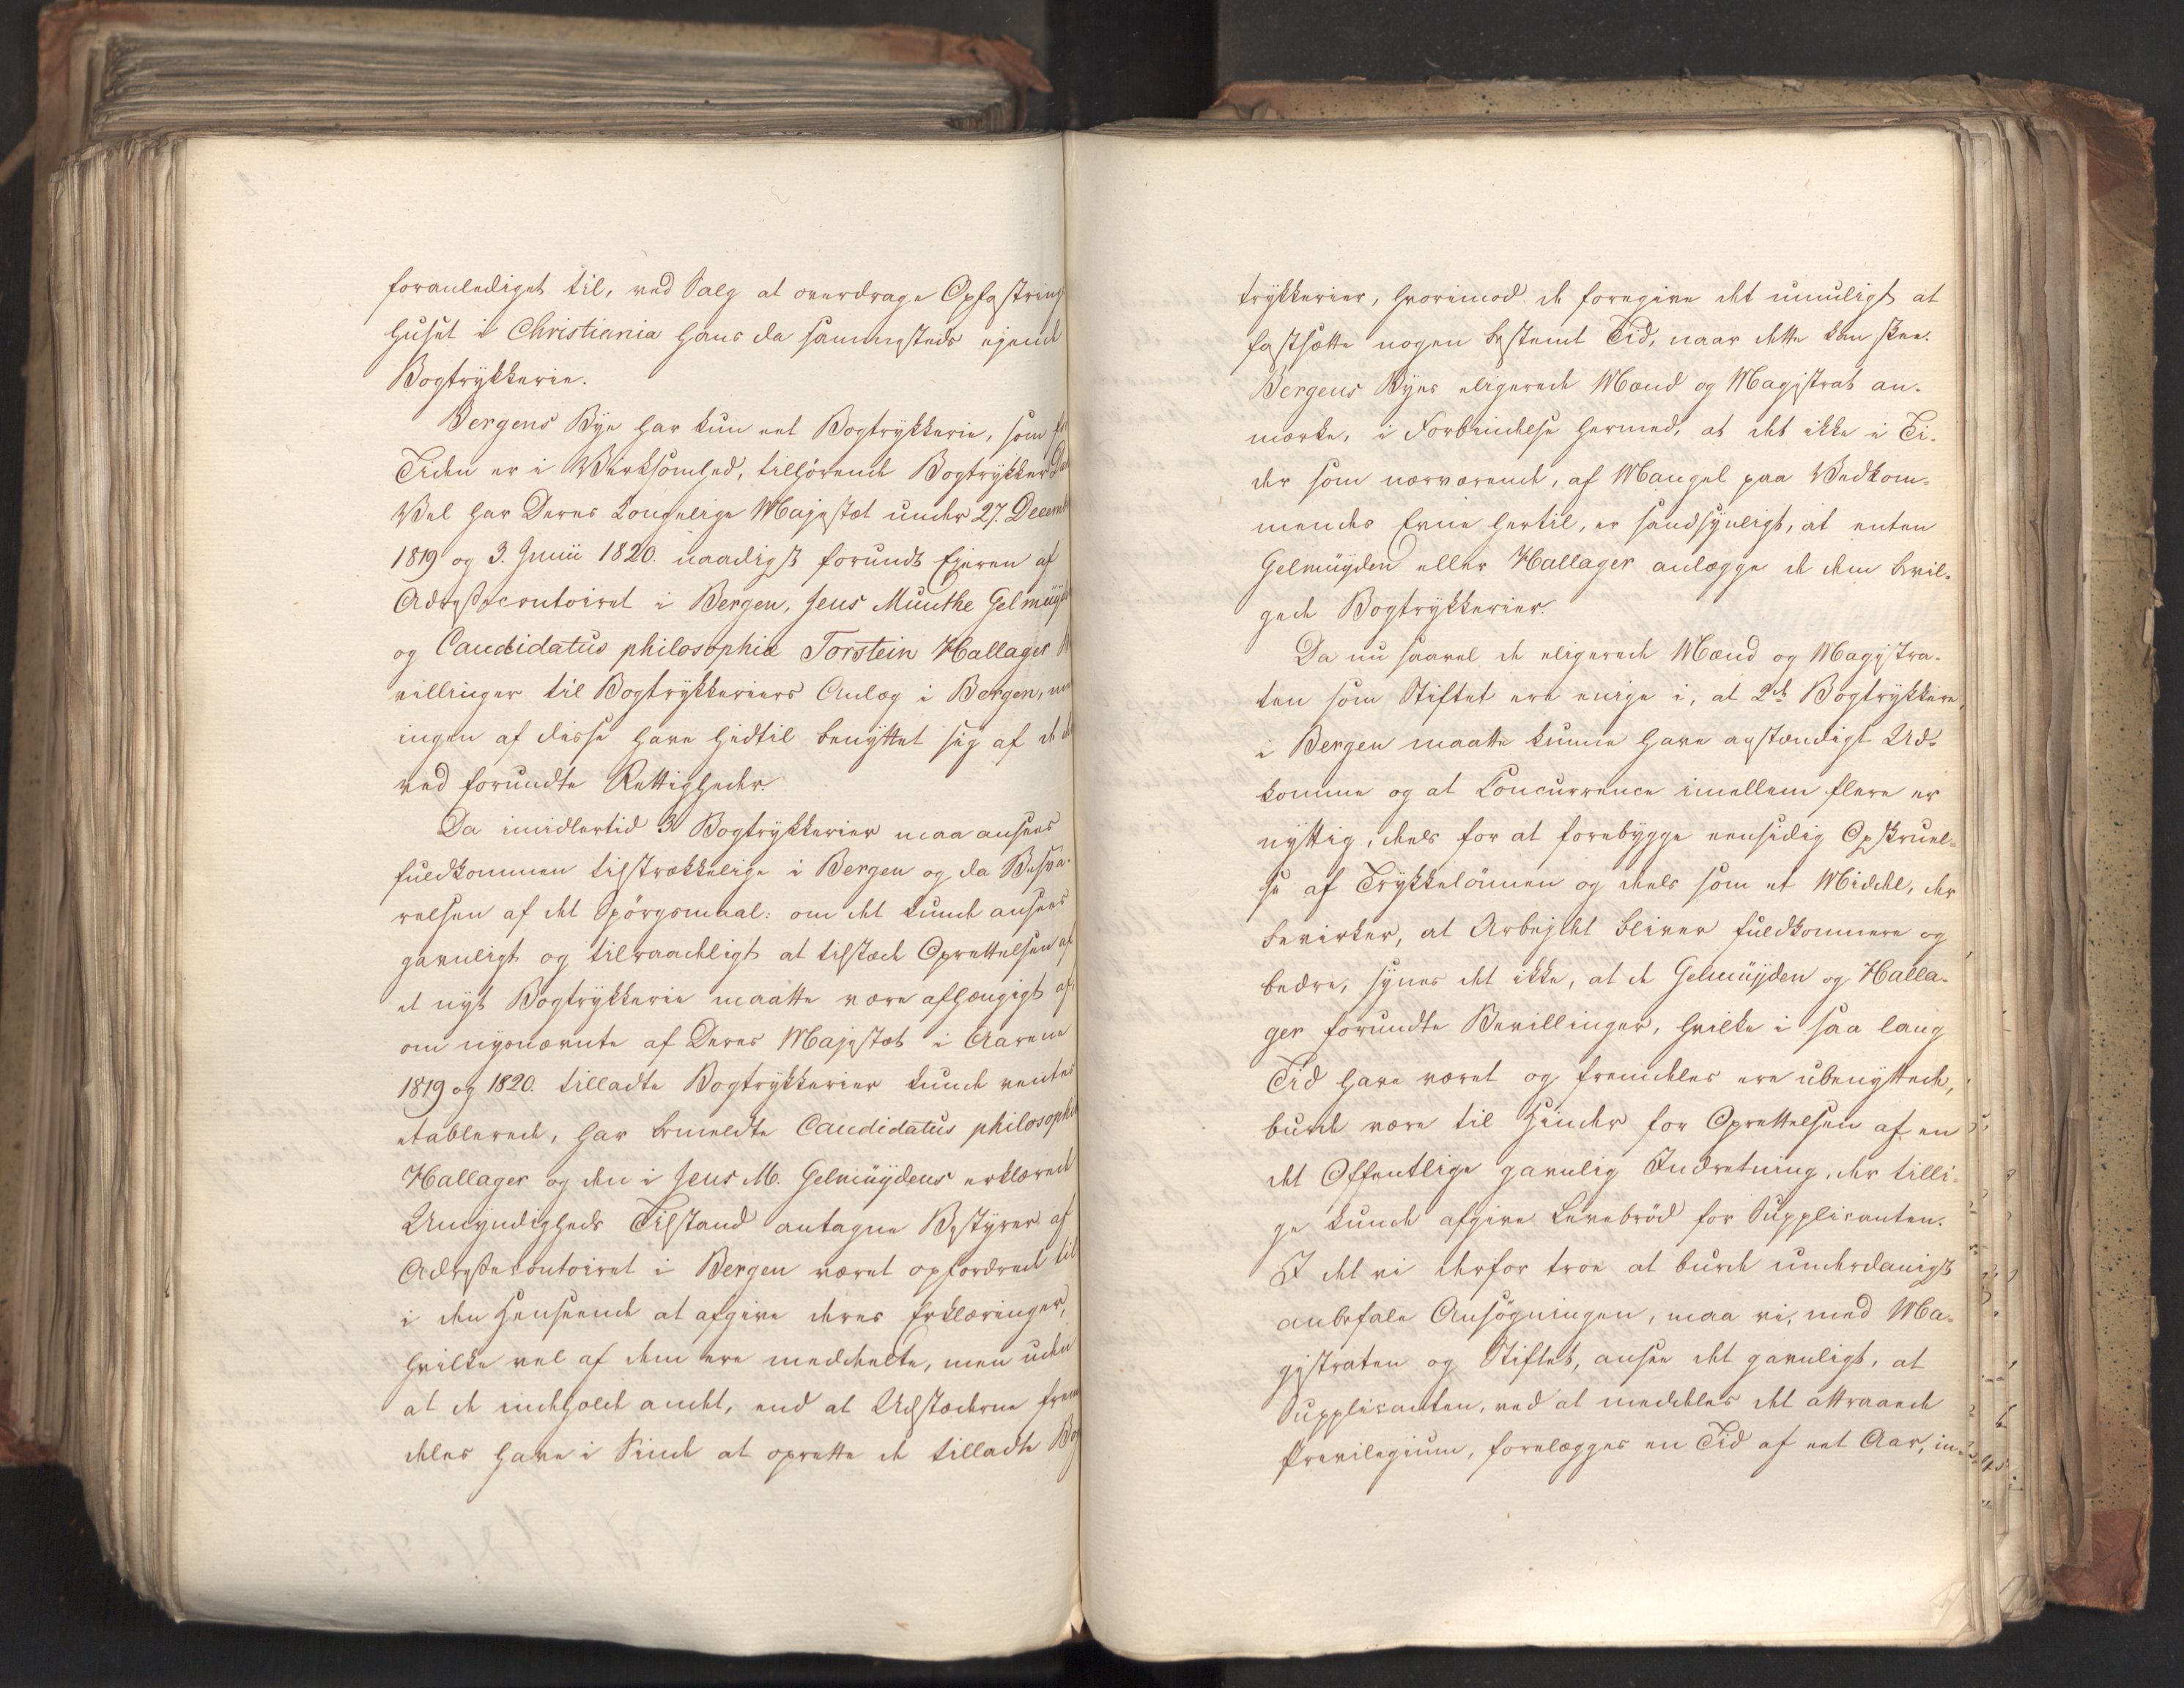 foranlediget til, ved Salg at overdrage Opfostrings
huset i Christiania hans da sammesteds ejende
Bogtrykkerie.
Bergens Bye har kun eet Bogtrykkerie, som for
Tiden er i Virksomhed, tilhørende Bogtrykker
Vel har Deres Kongelige Majestæt under 27. Decemb
1819 og 3. Junii 1820. naadigst forundt Ejeren af
Adressecontoiret i Bergen, Jens Munthe Gelmuyd
og Candidatus philosophiæ Torstein Hallager
villinger til Bogtrykkeriers Anlæg i Bergen, men
ingen af disse have hidtil benyttet sig af de
ved forundte Rettigheder.
Da imidlertid 3 Bogtrykkerier maa ansees
fuldkommen tilstrækkelige i Bergen og da Besva-
relsen af det Spørgsmaal: om det kunde ansees
gavnligt og tilraadeligt at tilstæde Oprettelsen af
et nyt Bogtrykkerie maatte være afhængigt af,
om nysnævnte af Deres Majestæt i Aarene
1819 og 1820. tilladte Bogtrykkerier kunde ventes
etablerede, har bemeldte Candidatus philosophiæ
Hallager og den i Jens M. Gelmuydens erklærede
Umyndigheds Tilstand antagne Bestyrer af
Adressecontoiret i Bergen været opfordrede til
i den Henseende at afgive deres Erklæringer,
hvilke vel af dem ere meddeelte, men uden
at de indeholde andet, end at Udstæderne frem
deles have i Sinde at oprette de tilladte Bog
trykkerier, hvorimod de foregive det umuligt at
fastsætte nogen bestemt Tid, naar dette kan skee.
Bergens Byes eligerede Mænd og Magistrat an-
mærke, i Forbindelse hermed, at det ikke i Ti-
der som nærværende, af Mangel paa Vedkom-
mendes Evne hertil, er sandsynligt, at enten
Gelmuyden eller Hallager anlægge de dem bevil-
gede Bogtrykkerier.
Da nu saavel de eligerede Mænd og Magistra-
ten som Stiftet ere enige i, at 2de Bogtrykkere
i Bergen maatte kunne have anstændigt Ud-
komme og at Concurrence imellem flere er
nyttig, deels for at forebygge eensidig Opskruel-
se af Trykkelønnen og deels som et Middel, der
bevirker, at Arbejdet bliver fuldkomnere og
bedre, synes det ikke, at de Gelmuyden og Halla-
ger forundte Bevillinger, hvilke i saa lang
Tid have været og fremdeles ere ubenyttede,
burde være til Hinder for Oprettelsen af en
det Offentlige gavnlig Indretning, der tilli-
ge kunde afgive Levebrød for Supplicanten.
I det vi derfor troe at burde underdanigst
anbefale Ansøgningen, maa vi, med Ma-
gistraten og Stiftet, ansee det gavnligt, at
Supplicanten, ved at meddeles det attraaede
Previlegium, forelægges en Tid af eet Aar, in-